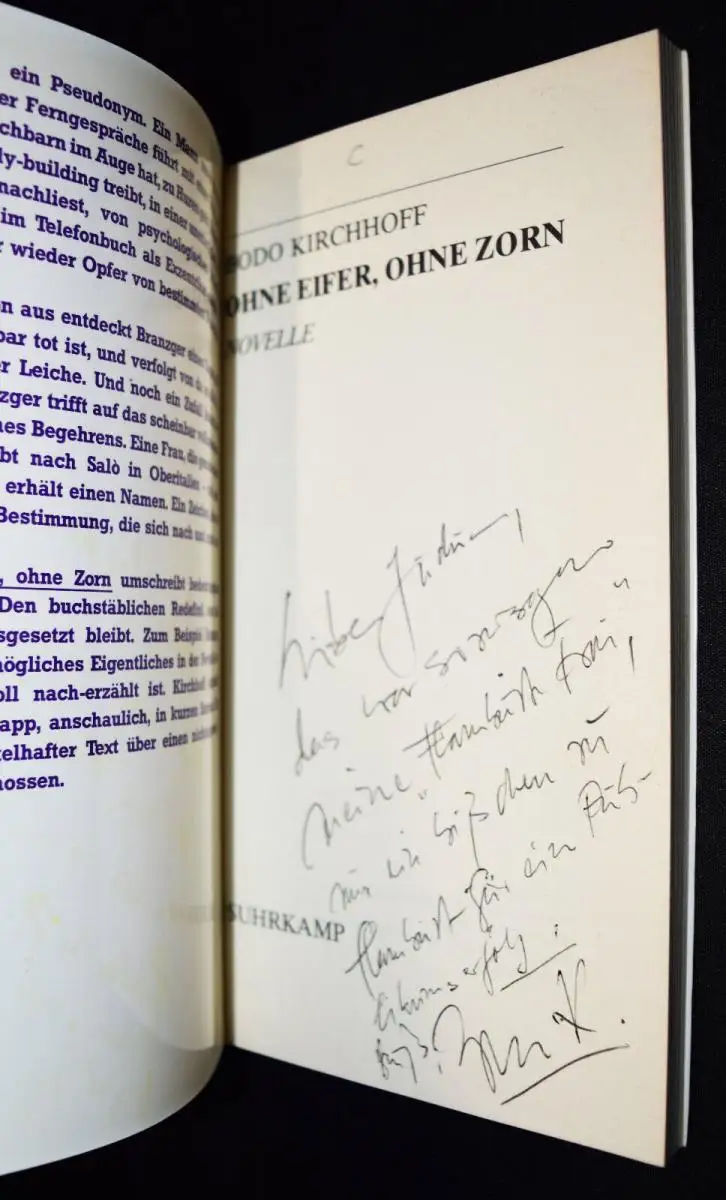 ein Pseudonym. Ein Mann
er Ferngespräche führt mit
chbarn im Auge hat, zu
ly-building treibt, in einer
nachliest, von psychologische
im Telefonbuch als
r wieder Opfer von bestimmten
n aus entdeckt Branzger
bar tot ist, und verfolgt von
r Leiche. Und noch ein Zufall
zger trifft auf das scheinbar
nes Begehrens. Eine Frau, die
bt nach Salò in Oberitalien
erhält einen Namen. Ein
Bestimmung, die sich nach und
, ohne Zorn umschreibt
Den buchstäblichen
sgesetzt bleibt. Zum Beispiel
nögliches Eigentliches in der
oll nach-erzählt ist. Kirchhoff
app, anschaulich, in kurzen
telhafter Text über einen
nossen.
C
BODO KIRCHHOFF
OHNE EIFER, OHNE ZORN
NOVELLE
das war sozusagen
meine
nur ein bißchen zu
für ein Pub-
likumserfolg.
SUHRKAMP